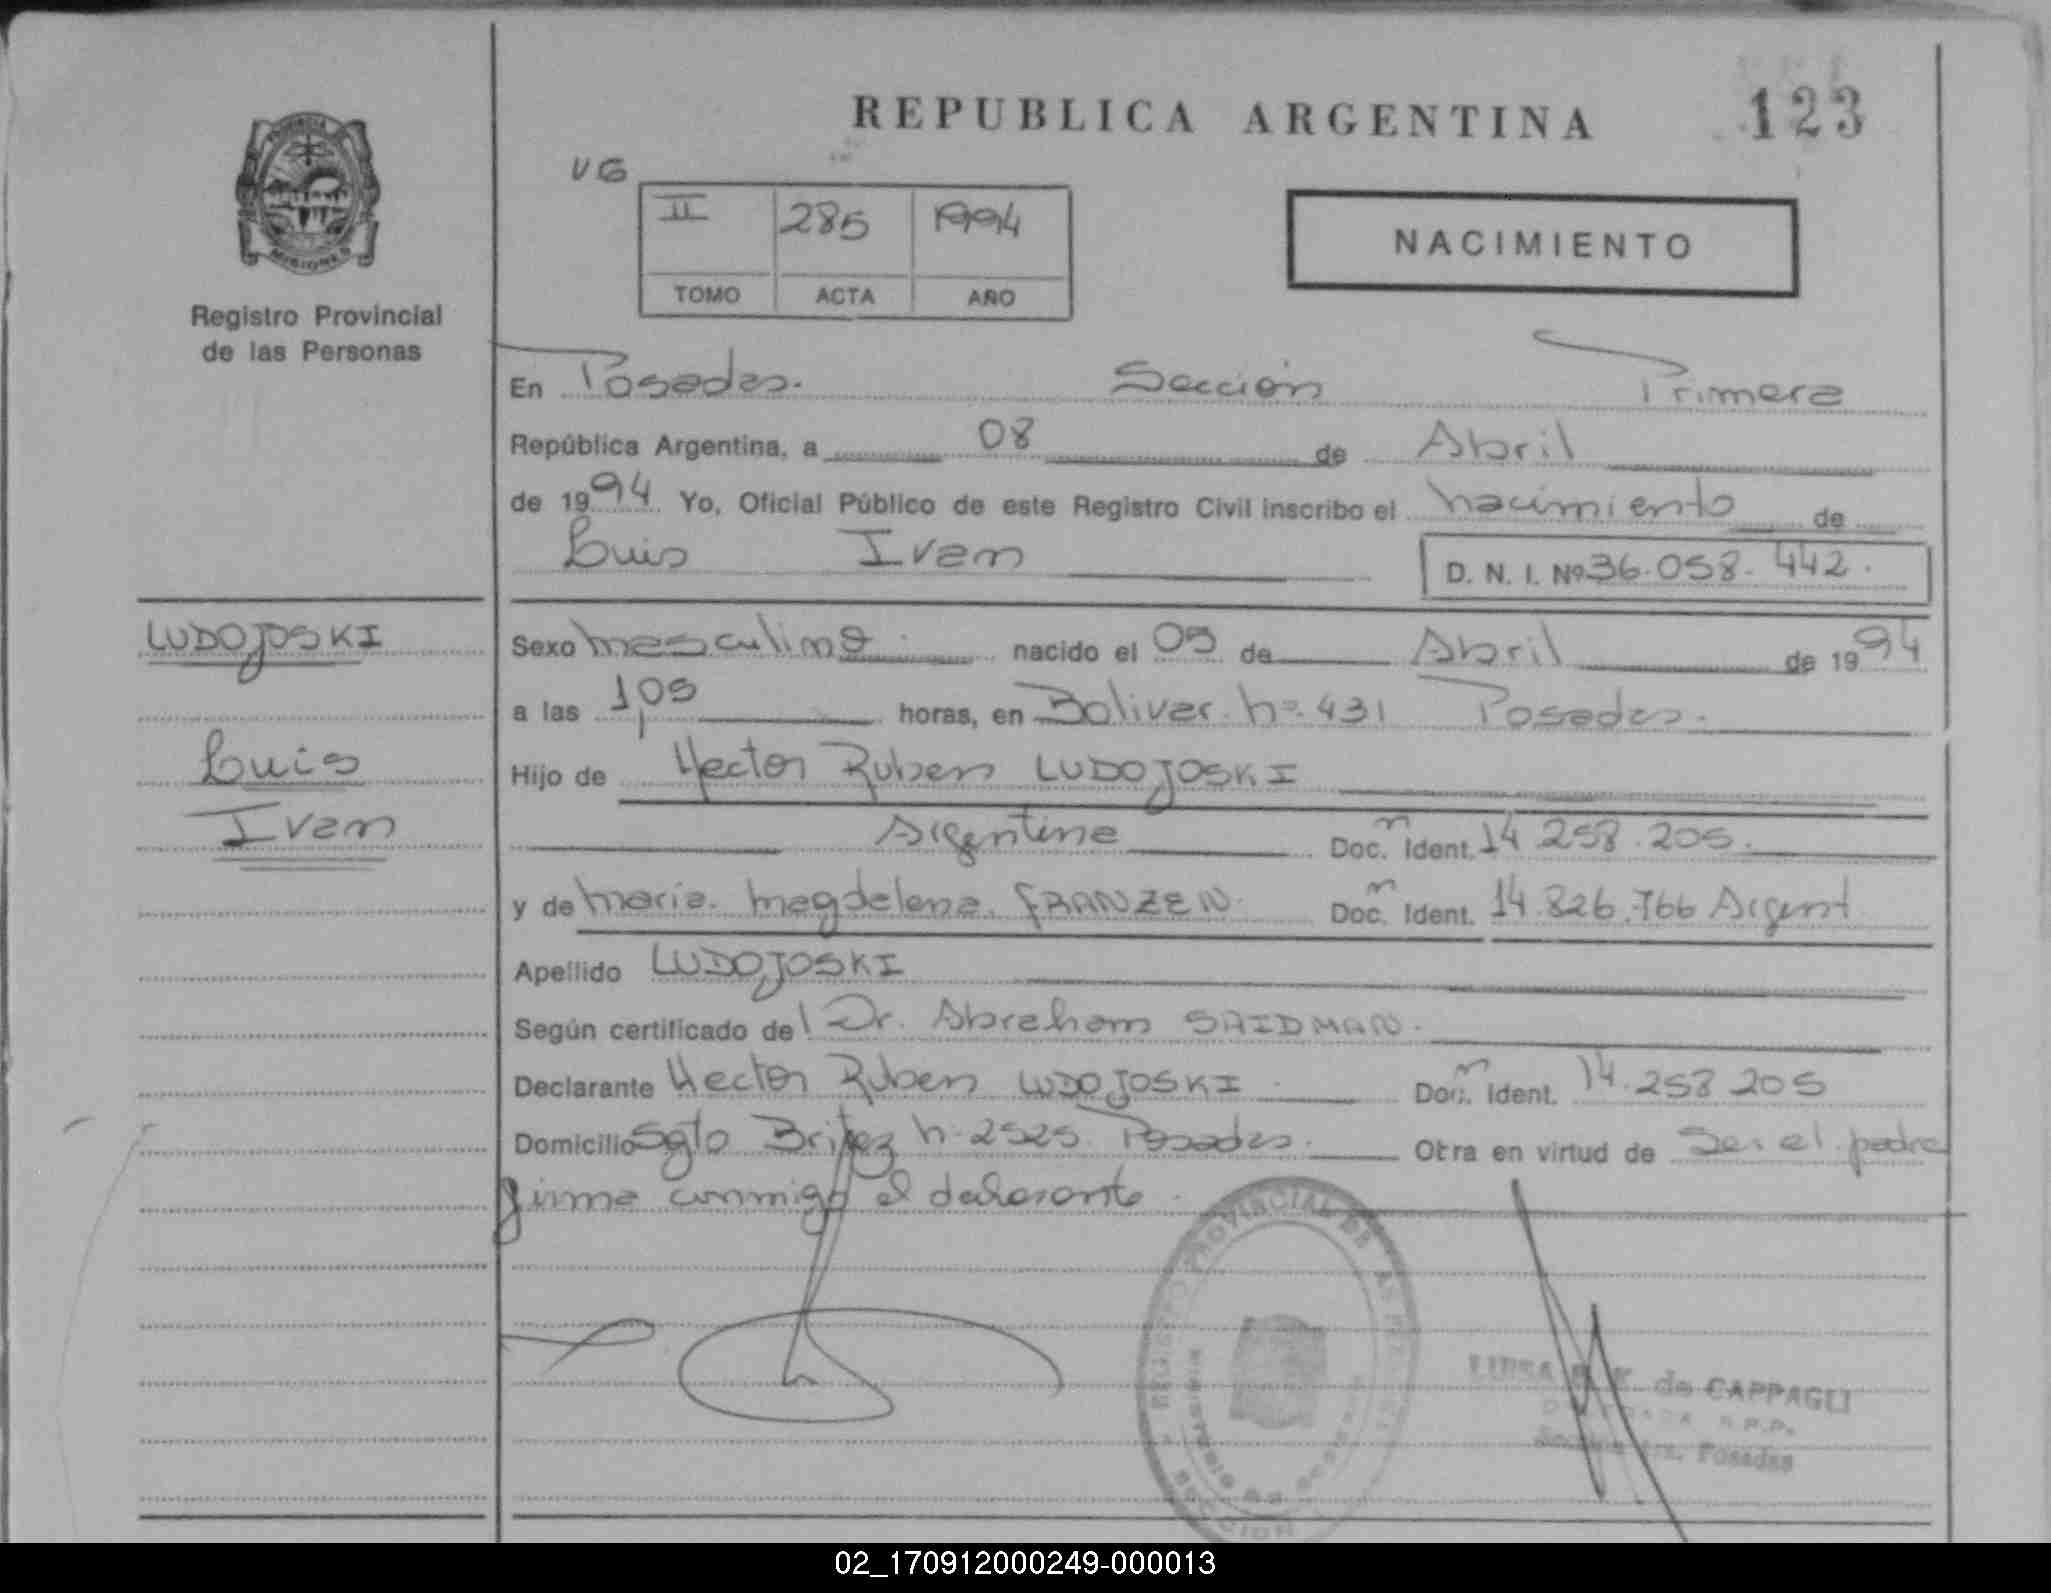 REPUBLICA ARGENTINA 123
PROVINCIA
MISIONES
Registro Provincial
de las Personas
VG
II 285 1994
TOMO ACTA AÑO
NACIMIENTO
En Posadas. Sección Primera
República Argentina, a 08 de Abril
de 1994 Yo, Oficial Público de este Registro Civil inscribo el nacimiento de
Luis Ivan D. N. I. Nº 36.058.442.
LUDOJOSKI
Luis
Ivan
Sexo masculino nacido el 05 de Abril de 1994
a las 1,05 horas, en Bolivar nº 431 Posadas.
Hijo de Hector Ruben LUDOJOSKI
Argentina Doc. Ident. 14.258.205.
y de Maria Magdalena FRANZEN Doc. Ident. 14.826.766 Argent
Apellido LUDOJOSKI
Según certificado del Dr. Abraham SAIDMAN.
Declarante Hector Ruben LUDOJOSKI Doc. Ident. 14.258.205
Domicilio Sgto Britez n. 2525. Posadas. Obra en virtud de Ser el padre
firma conmigo el declarante.
REGISTRO PROVINCIAL DE LAS
SECCION
LUISA K. de CAPPAGLI
R.P.P.
Posadas
02_170912000249-000013